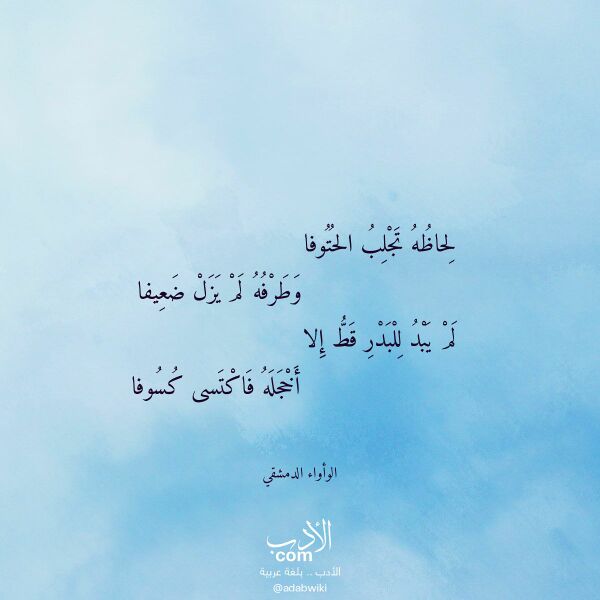 لِحاظُهُ تَجْلِبُ الحُتُوفا
وَطَرْفُهُ لَمْ يَزَلْ ضَعِيفا
لَمْ يَبْدُ لِلْبَدْرِ قَطُّ إِلا
أَخْجَلَهُ فَاكْتَسى كُسُوفا
الوأواء الدمشقي
الأدب
com
الأدب .. بلغة عربية
@adabwiki